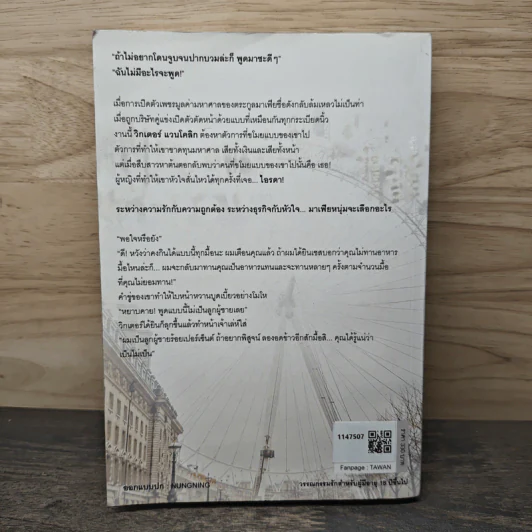 "ถ้าไม่อยากโดนจูบจนปากบวมล่ะก็ พูดมาซะดีๆ"
"ฉันไม่มีอะไรจะพูด!"
เมื่อการเปิดตัวเพชรมูลค่ามหาศาลของตระกูลมาเฟียชื่อดังกลับล้มเหลวไม่เป็นท่า
เมื่อถูกบริษัทคู่แข่งเปิดตัวตัดหน้าด้วยแบบที่เหมือนกันทุกกระเบียดนิ้ว
งานนี้ วิกเตอร์ แวนโคลิก ต้องหาตัวการที่ขโมยแบบของเขาไป
ตัวการที่ทำให้เขาขาดทุนมหาศาล เสียทั้งเงินและเสียทั้งหน้า
แต่เมื่อสืบสาวหาต้นตอกลับพบว่าคนที่ขโมยแบบของเขาไปนั้นคือ เธอ!
ผู้หญิงที่ทำให้เขาหัวใจสั่นไหวได้ทุกครั้งที่เจอ... ไอรดา!
ระหว่างความรักกับความถูกต้อง ระหว่างธุรกิจกับหัวใจ... มาเฟียหนุ่มจะเลือกอะไร
"พอใจหรือยัง"
"ดี! หวังว่าคงกินได้แบบนี้ทุกมื้อนะ ผมเตือนคุณแล้ว ถ้าผมได้ยินเชสบอกว่าคุณไม่ทานอาหาร
มื้อไหนล่ะก็... ผมจะกลับมาทานคุณเป็นอาหารแทนและจะทานหลายๆ ครั้งตามจำนวนมื้อ
ที่คุณไม่ยอมทาน!"
คำขู่ของเขาทำให้ใบหน้าหวานบูดเบี้ยวอย่างโมโห
"หยาบคาย! พูดแบบนี้ไม่เป็นลูกผู้ชายเลย"
วิกเตอร์ได้ยินก็ลุกขึ้นแล้วทำหน้าเจ้าเล่ห์ใส่
"ผมเป็นลูกผู้ชายร้อยเปอร์เซ็นต์ ถ้าอยากพิสูจน์ ลองอดข้าวอีกสักมื้อสิ... คุณได้รู้แน่ว่า
เป็นไม่เป็น"
1147507
Fanpage : TAWAN
ออกแบบปก : NUNGNING
วรรณกรรมรักสำหรับผู้มีอายุ 18 ปีขึ้นไป